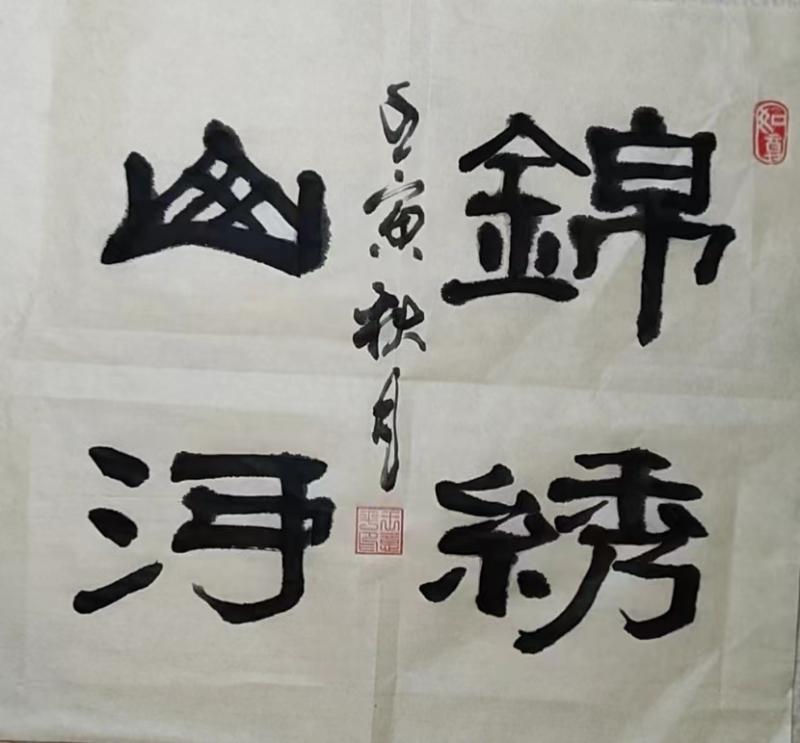 錦綉
山河
壬寅秋月